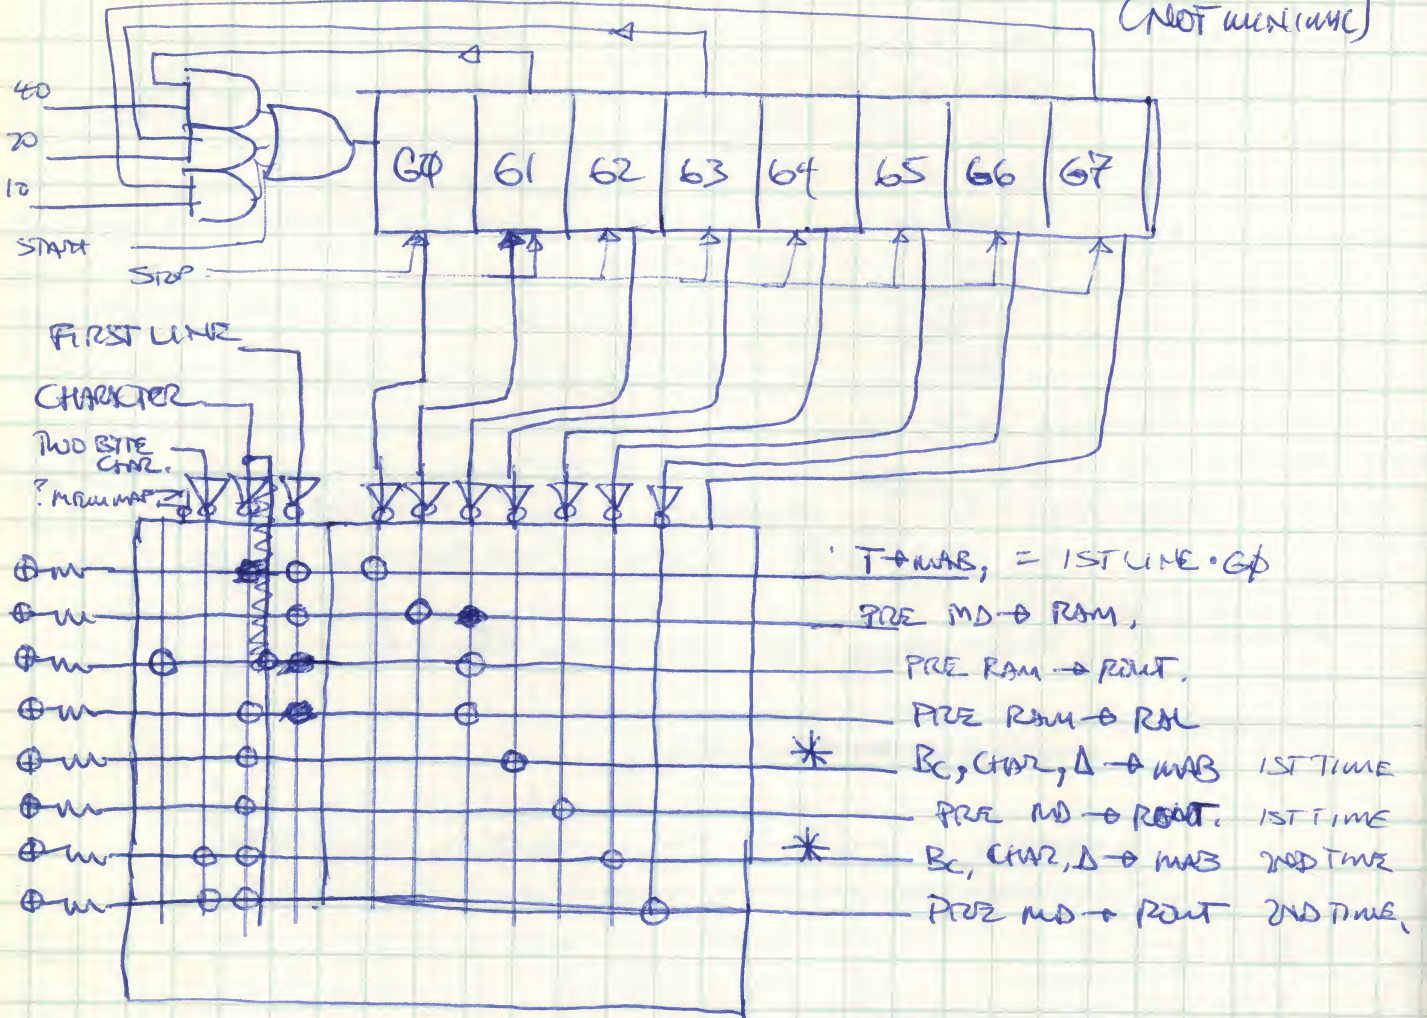 (NOT
40
20
10
START
STOP
GØ G1 G2 G3 G4 G5 G6 G7
FIRST LINE
CHARACTER
TWO BYTE
CHAR.
? MEM MAP
T→MAB, = 1ST LINE·GØ
PRE MD → RAM,
PRE RAM → ROUT.
PRE RAM → RAL
* BC, CHAR, Δ → MAB 1ST TIME
PRE MD → ROUT. 1ST TIME
* BC, CHAR, Δ → MAB 2ND TIME
PRE MD → ROUT 2ND TIME,